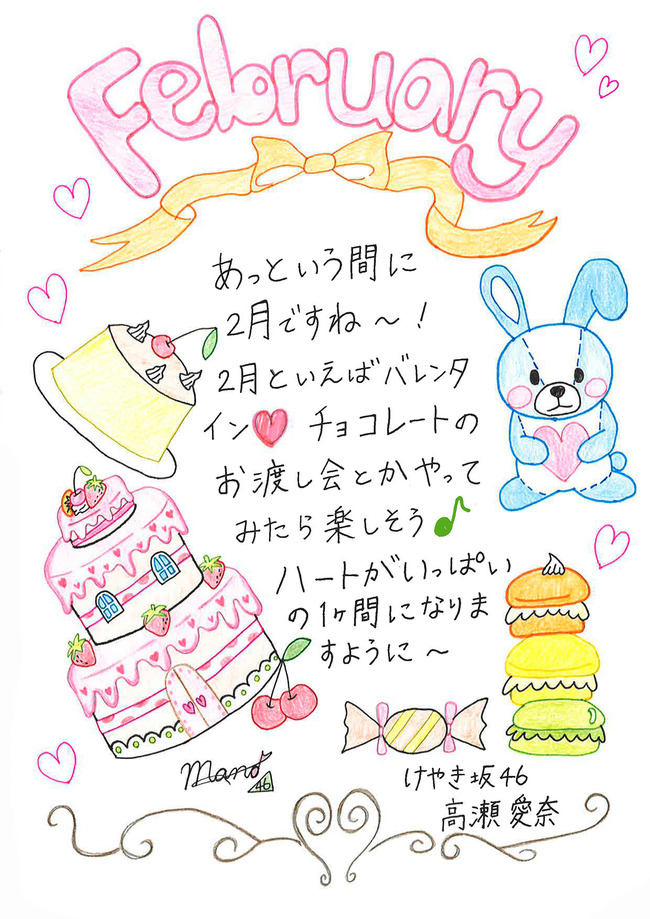 February
あっという間に
2月ですね～！
2月といえばバレンタ
イン♥ チョコレートの
お渡し会とかやって
みたら楽しそう♪
ハートがいっぱい
の1ヶ間になりま
すように～
mana
46
けやき坂46
高瀬愛奈